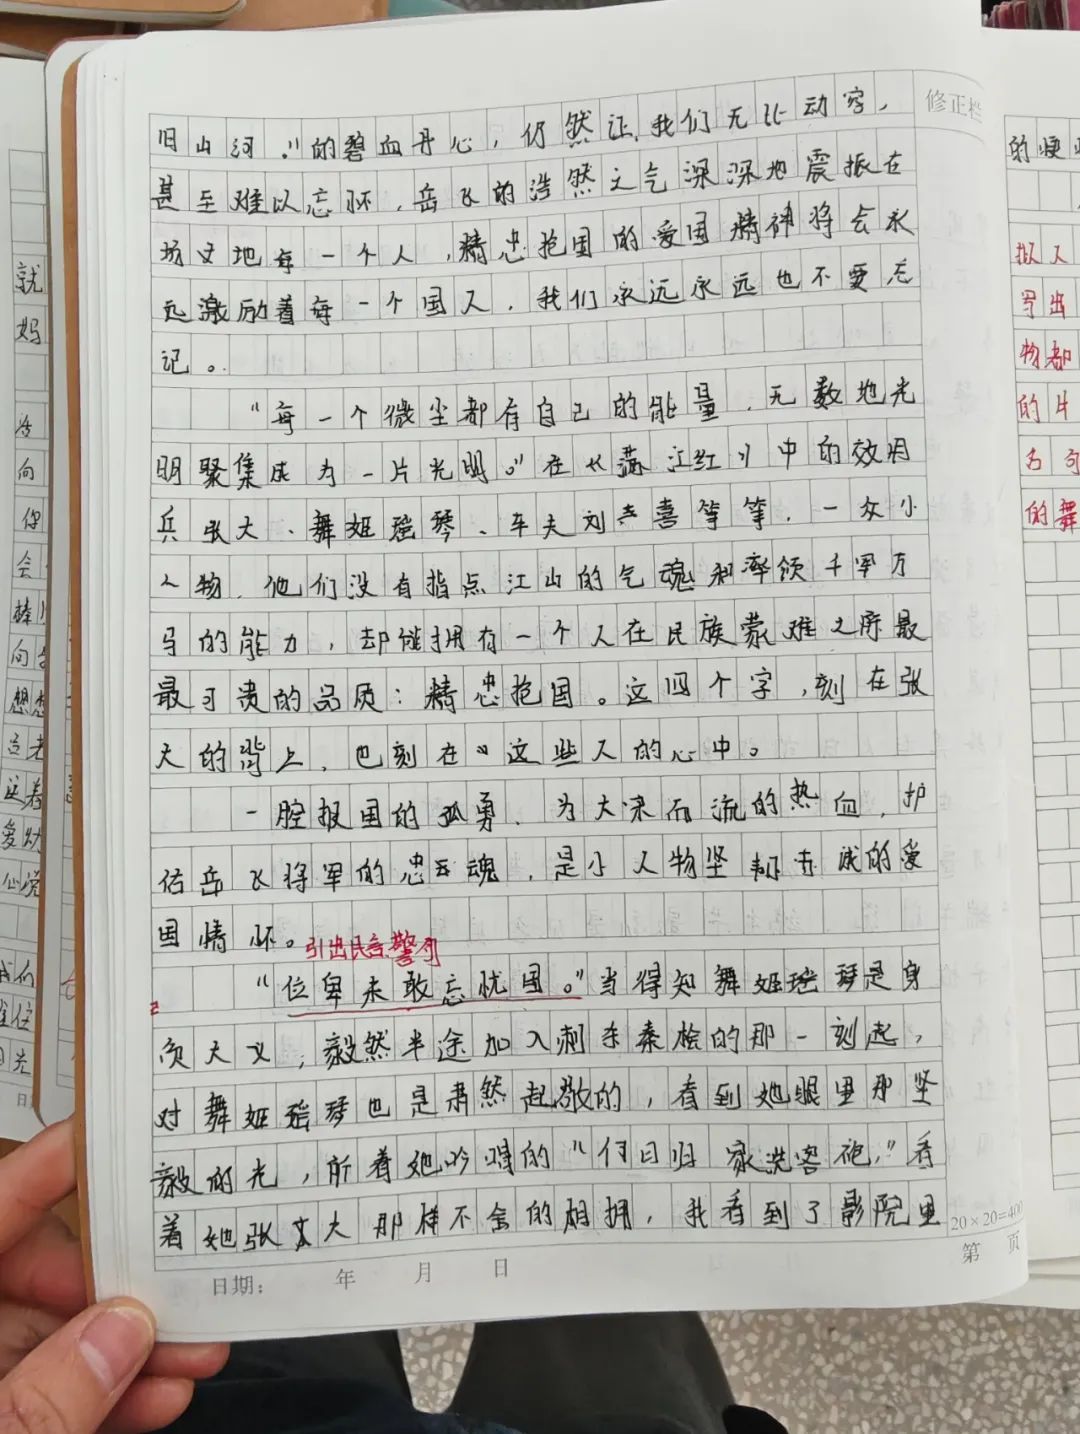 旧山河。”的碧血丹心，仍然让我们无比动容，
甚至难以忘怀，岳飞的浩然之气深深地震振在
场文地每一个人，精忠抱国的爱国精神将会永
远激励着每一个国人，我们永远永远也不要忘
记。
“每一个微尘都有自己的能量，无数地光
明聚集成为一片光明。”在《满江红》中的效用
兵张大、舞姬瑶琴、车夫刘喜等等，一众小
人物，他们没有指点江山的气魂和率领千军万
马的能力，却能拥有一个人在民族蒙难之际最
最可贵的品质：精忠抱国。这四个字，刻在张
大的背上，也刻在这些人的心中。
一腔报国的孤勇、为大宋而流的热血，护
佑岳飞将军的忠魂，是小人物坚韧赤诚的爱
国情怀。
引出民言警句
“位卑未敢忘忧国。”当得知舞姬瑶琴是身
负大义，毅然半途加入刺杀秦桧的那一刻起，
对舞姬瑶琴也是肃然起敬的，看到她眼里那坚
毅的光，听着她吟唱的“何日归家洗客袍，”看
着她张大那样不舍的相拥，我看到了影院里
修正栏
20×20=400
第 页
日期： 年 月 日
的
拟人
写出
物都
的片
名句
的舞
就
妈
向
你
会
向
想想
爱幼